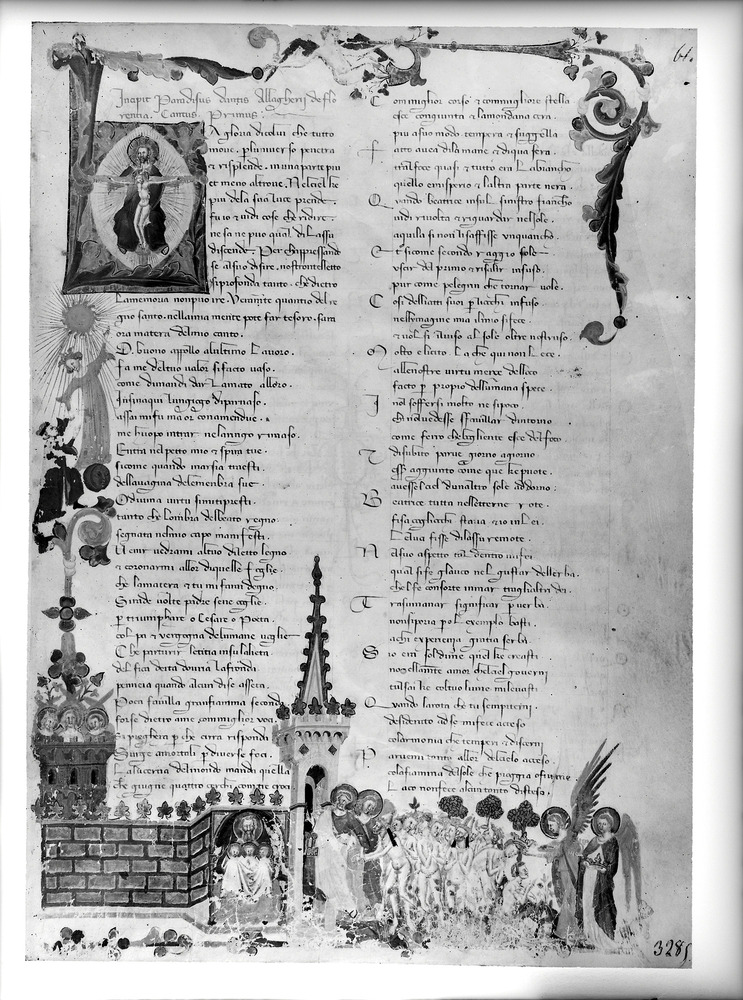 61.
Incipit Paradisus dantis Allagherij de flo
rentia. Cantus Primus
La gloria dicolui che tutto
moue. per luniuerso penetra
et risplende. in una parte piu
et meno altroue. Nelciel che
piu dela sua luce prende.
fu io et uidi cose che ridire.
ne sa ne puo qual dilassu
discende. Per chappressando
se alsuo disire. nostro intelletto
siprofonda tanto. che dietro
Lamemoria non puo ire. Veramente quantio del re
gno santo. nella mia mente pote far tesoro. sara
ora matera delmio canto.
O. buono appollo alultimo Lauoro.
fa me deltuo ualor sifacto uaso.
come dimandi dar Lamato alloro.
Insinaqui lungiogo diparnaso.
assai mifu ma or conamendue.
me huopo intrar nelaringo rimaso.
Entra nel petto mio et spira tue.
sicome quando marsia traesti.
dellauagina delemembra sue.
O diuina uirtu simitipresti.
tanto che lombra delbeato regno.
segnata nelmio capo manifesti.
Venir uedrami altuo diletto legno
et coronarmi allor diquelle foglie.
che lamatera et tu mi farai degno.
Si rade uolte padre sene coglie.
per triumphare o Cesare o Poeta.
colpa et uergogna delumane uoglie
Che parturir letitia insulalieta.
delfica deita douria lafronda
peneia quando alcun dise asseta.
Poca fauilla granfiamma seconda
forse dietro ame conmiglior uoci.
si preghera perche cirra rispondi
Surge amortali per diuerse foci.
Lalucerna delmondo ma da quella
che giugne quattro cerchi con tre croci
Con miglior corso et conmigliore stella
esce congiunta et lamondana cera.
piu asuo modo tempera et suggella
fatto auea dila mane et diqua sera.
tal foce quasi et tutto era Labiancho
quello emisperio et laltra parte nera.
Quando beatrice insul sinistro fiancho
uidi riuolta et riguardar nelsole.
aquila si non lisaffisse unquancho.
Et sicome secondo raggio sole
uscir del primo et risalir insuso.
pur come pelegrin che tornar uole.
Cosi delatti suoi per liocchi infuso.
nellymagine mia ilmio sifece.
et uolsi liuiso al sole oltre nostruso.
Molto e licito. La che qui non Lece.
allenostre uirtu merce delloco
facto per proprio dellumana spece.
I nol soffersi molto ne sipoco.
chinoluedesse sfauillar dintorno
come ferro chebogliente esce del foco.
Et disubito parue giorno agiorno
essere aggiunto come que che puote.
auesse elciel dunaltro sole addorno.
Beatrice tutta nelleterne rote.
fisa cogliocchi staua et io inlei.
Le luci fisse dilassu remote.
Nelsuo aspetto tal dentro mi fei
qual sife glauco nel gustar dellerba.
chelfe consorte inmar deglialtri dei.
Trasumanar significar per uerba
nonsiporia pero L exemplo basti.
achi experienza gratia serba.
Sio era sol dime quel che creasti
nouellamente amor chelciel gouerni
tulsai che coltuo lume mileuasti
Quando larota che tu sempiterni
desiderato ad se mifece acteso
colarmonia che temperi et discerni
Paruemi tanto allor delcielo acceso
colafiamma delsole che pioggia ofiume
Laco nonfece alcun tanto disteso.
328